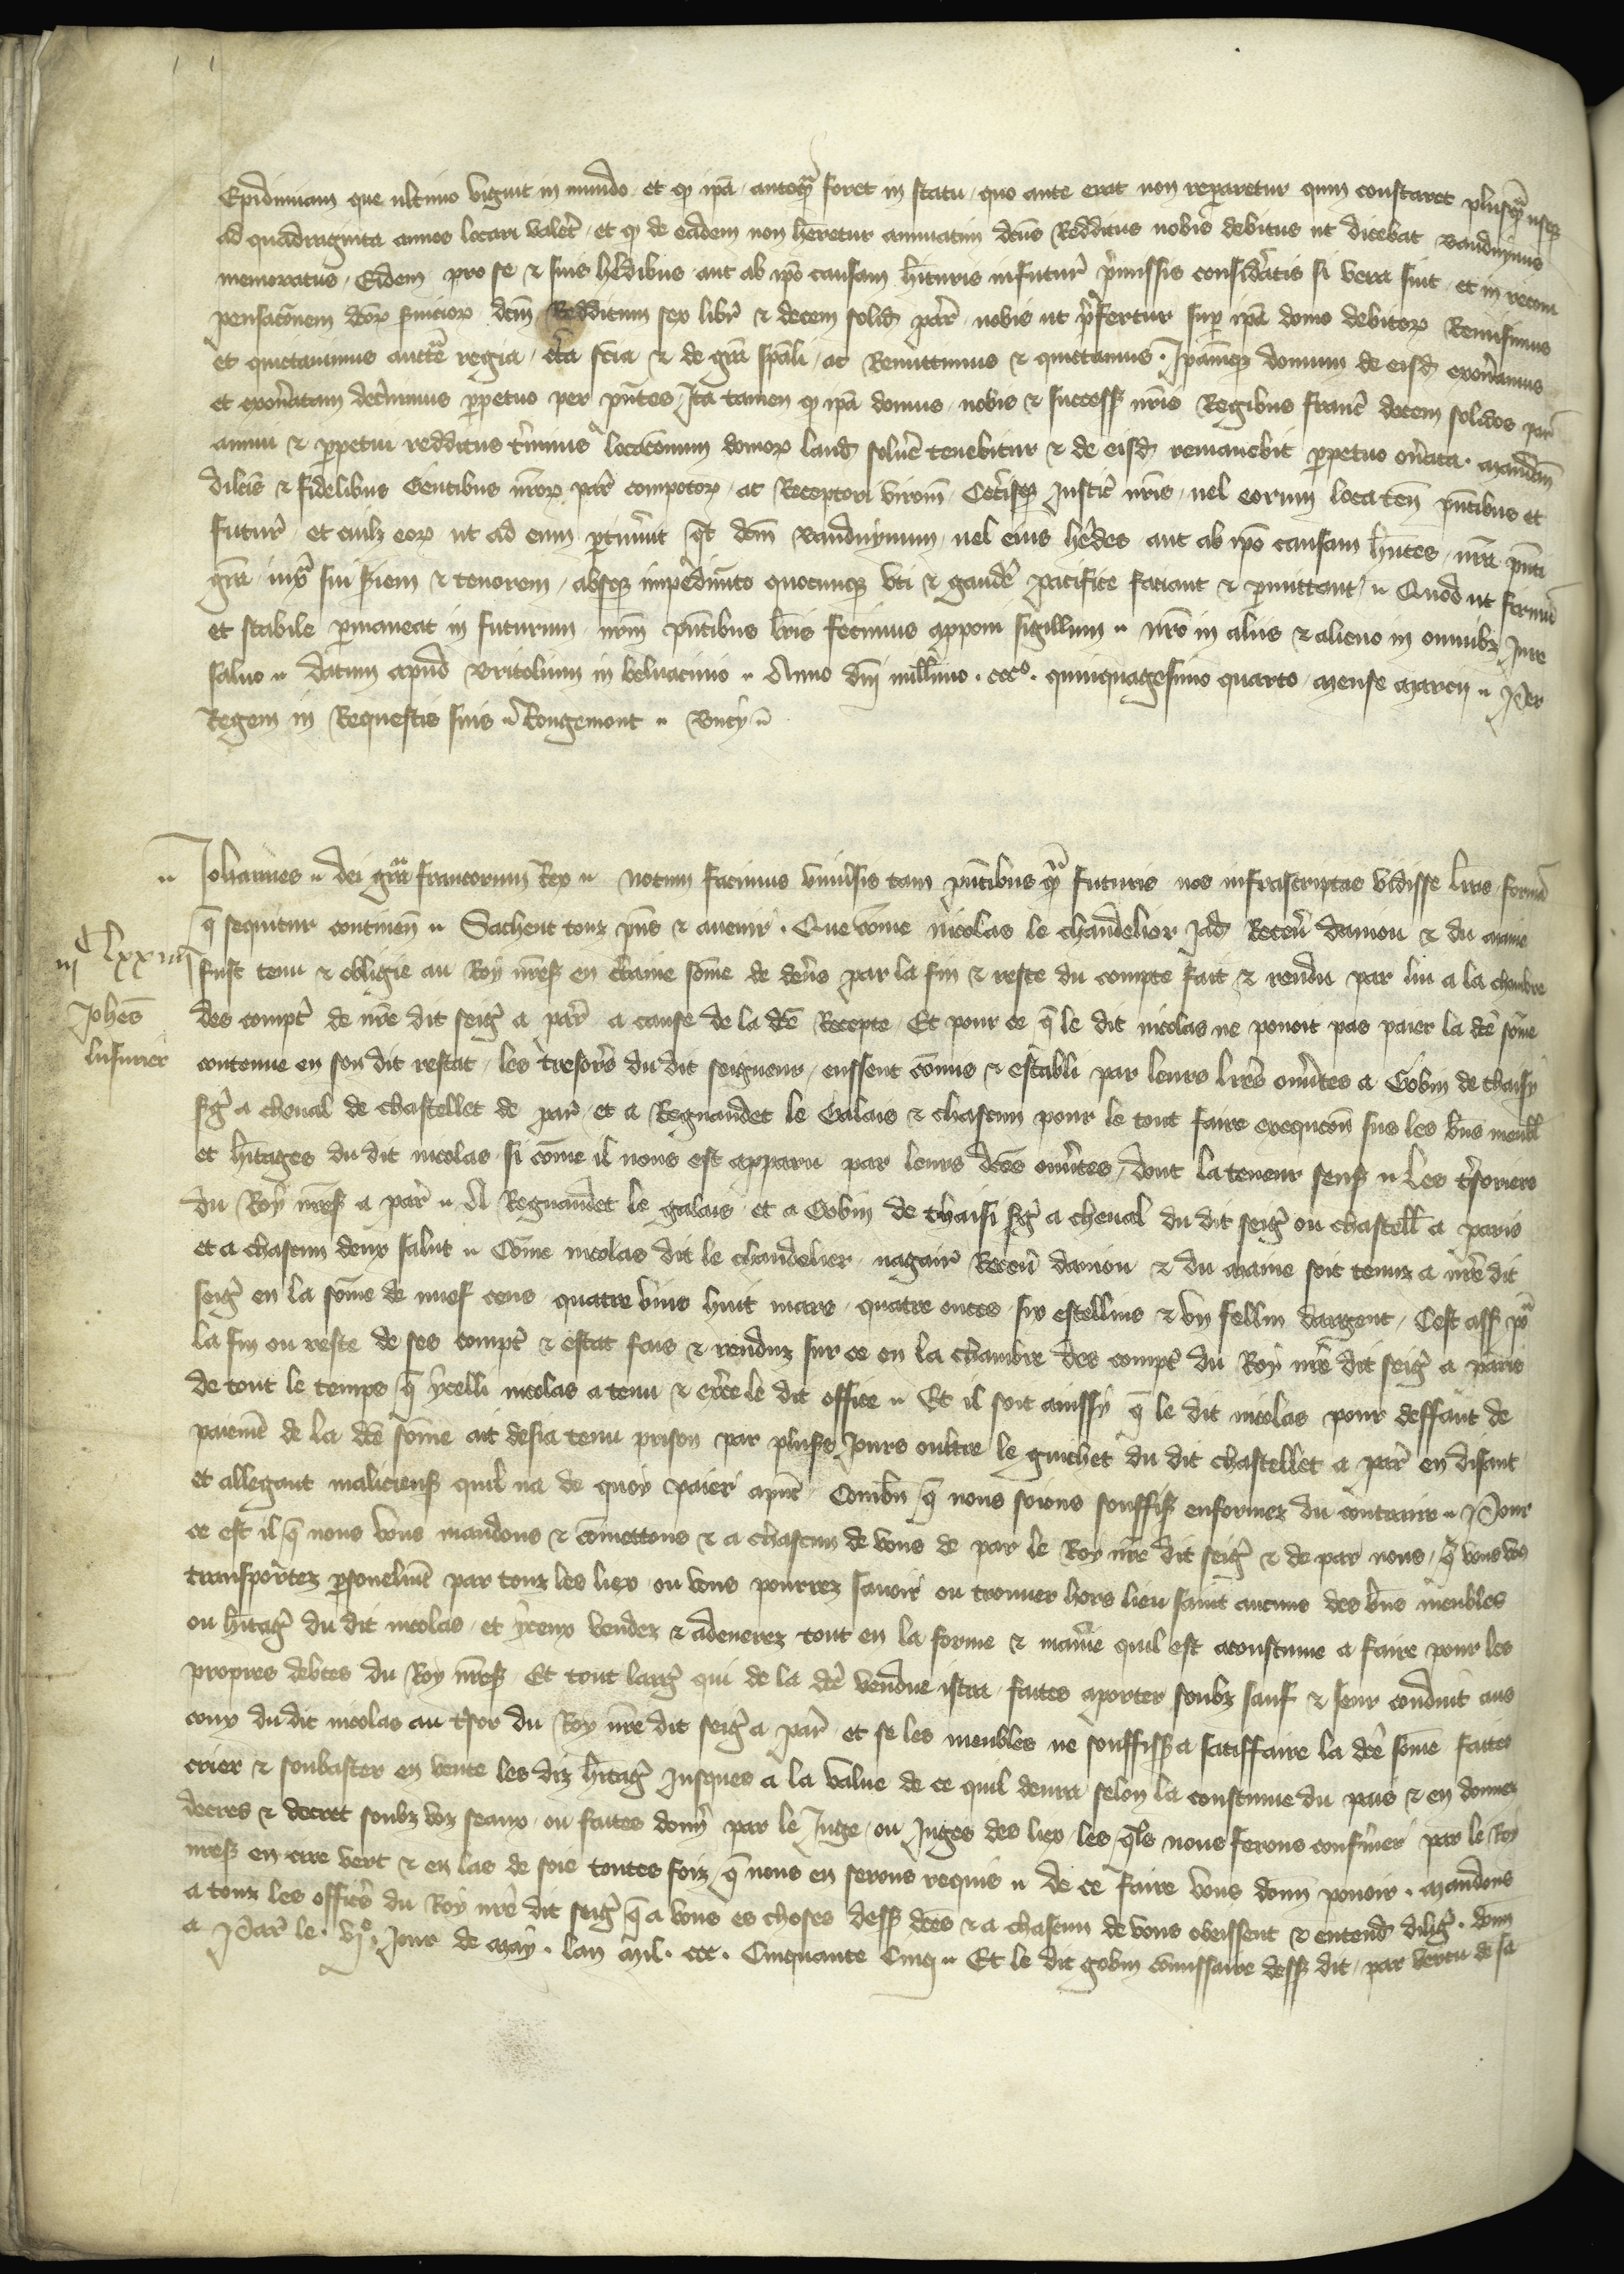 Epidimiam que ultimo viguit in mundo et qd ipa antequa foret in statu quo ante erat non repararetur quin constaret plusqua usqz
ad quadraginta annos locari valet et qd de eadem non heretur annuatim dcus Redditus nobis debitus ut dicebat Bauduynus
memoratus Eidem pro se & suis hedibus aut ab ipo causam hituris infutur pmissis considatis si vera sint et in recom
pensaconem dcor suicior dcm Redditum sex libr & decem solid par nobis ut pfertur sup ipa domo debitor Remisimus
et quictauimus aucte regia cta scia & de gra spali ac Remittimus & quictamus Ipamqz domum de eisd exonamus
et exonatam decnimus ppetuo per pntes Ita tamen qd ipa domus nobis & success nris Regibus franc decem solidos par
annui & ppetui redditus tminis locaconum domor laud solue tenebitur & de eisd remanebit ppetuo onata mandam
dilcis & fidelibus Gentibus nror par compotor ac Receptori virom Cetisqz Justic nris uel eorum loca ten pntibus et
futur et cuilz eor ut ad eum ptinuit qt dcm Bauduynum uel eius hedes aut ab ipo causam hntes nra pnti
gra iuxa sui siem & tenorem absqz impedimto quocunqz vti & gaude pacifice faciant & pmittant Quod ut firmu
et stabile pmaneat in futurum nrm pntibus lris fecimus apponi sigillum nro in aliis & alieno in omnibz Jure
saluo datum apud Britolium in beluacinio Anno dni millimo ccco quinquagesimo quarto mense marcij Per
Regem in Requestis suis Rougemont Bucy

Johannes dei gra francorum Rex notum facimus vniusis tam pntibus qua futuris nos infrascriptas vidisse lras forma
q sequitur continen Sachent touz pns & auenir Que come nicolas le chandelior Jad Receu daniou & du maine
iijc lxxiiij
fust tenu & obligie au Roy nres en ctaine some de dens par la fin & reste du compte fait & rendu par lui a la chambre
Johes
lusurier
des compt de nre dit seig a par a cause de la de Recepte Et pour ce q le dit nicolas ne pouoit pas paier la de some
contenue en son dit restat les tresors du dit seigneur eussent comis & establi par leurs lres ouutes a Gobin de thaisy
sg a cheual de chastellet de par et a Regnaudet le Galais & chascun pour le tout faire execucon sus les bns meubl
et hitages du dit nicolas si come il nous est apparu par leurs dces ouutes dont la teneur sens Les tsoriers
du Roy nres a par A Regnaudet le galais et a Gobin de thaisi sg a cheual du dit seig ou chastell a paris
et a chascun deux salut Come nicolas dit le chandelier nagair Receu daniou & du maine soit tenuz a nre dit
seig en la some de nuef cens quatre vins huit mars quatre onces six estellins & vn fellin dargent Cest ass po
la fin ou reste de ses compt & estat fais & renduz sur ce en la chambre des compt du Roy nre dit seig a paris
de tout le temps q ycelli nicolas a tenu & exce le dit office Et il soit ainssy q le dit nicolas pour deffaut de
paiem de la de some ait desia tenu prison par pluss Jours oultre le guichet du dit chastellet a par en disant
et allegant malicieus quil na de quoy paier apnt Combn q nous soions souffis enformez du contraire Pour
ce est il q nous vous mandons & comettons & a chascun de vous de par le Roy nre dit seig & de par nous q vous vos
transportez psonelmt par touz les liex ou vous pourrez sauoir ou trouuer hors lieu saint aucuns des bns meubles
ou hitag du dit nicolas et yceux vendez & adenerez tout en la forme & manie quil est acoustume a faire pour les
propres debtes du Roy nres Et tout larg qui de la de vendue istra faites aporter soubz sauf & seur conduit aus
coux du dit nicolas au tsor du Roy nre dit seig a par et se les meubles ne souffiss a satiffaire la de some faites
crier & soubaster en vente les diz hitag Jusques a la value de ce quil deura selon la coustume du pais & en donnez
decres & decret soubz voz seaux ou faites donn par le Juge ou Juges des liex les qls nous ferons confimer par le Roy
nres en cire vert & en las de soie toutes foiz q nous en serons requis de ce faire vous donn pouoir mandons
a touz les offics du Roy nre dit seig q a vous es choses dess dces & a chascun de vous obeissent & entend dilig donn
a Par le vje Jour de may lan mil ccc Cinquante Cinq Et le dit gobin comissaire dess dit par vertu de sa